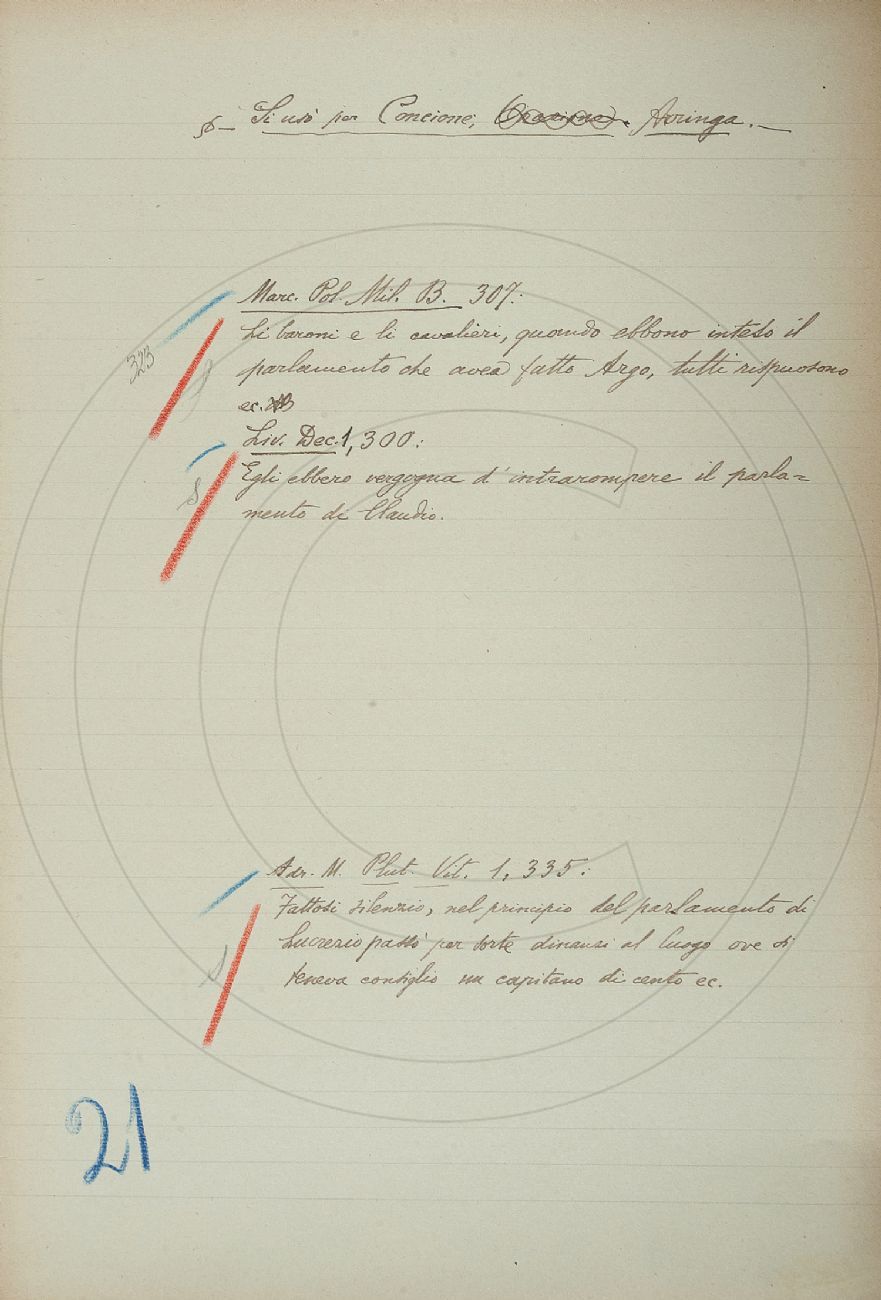 § — Si usò per Concione, Orazione, Aringa. —
Marc. Pol. Mil. B. 307:
Li baroni e li cavalieri, quando ebbono inteso il
323
parlamento che avea fatto Argo, tutti rispuosono
ec.
Liv. Dec. 1, 300:
Egli ebbero vergogna d'intrarompere il parla=
S
mento di Claudio.
Adr. M. Plut. Vit. 1, 335:
Fattosi silenzio, nel principio del parlamento di
Lucrezio passò per sorte dinanzi al luogo ove si
S
teneva consiglio un capitano di cento ec.
21